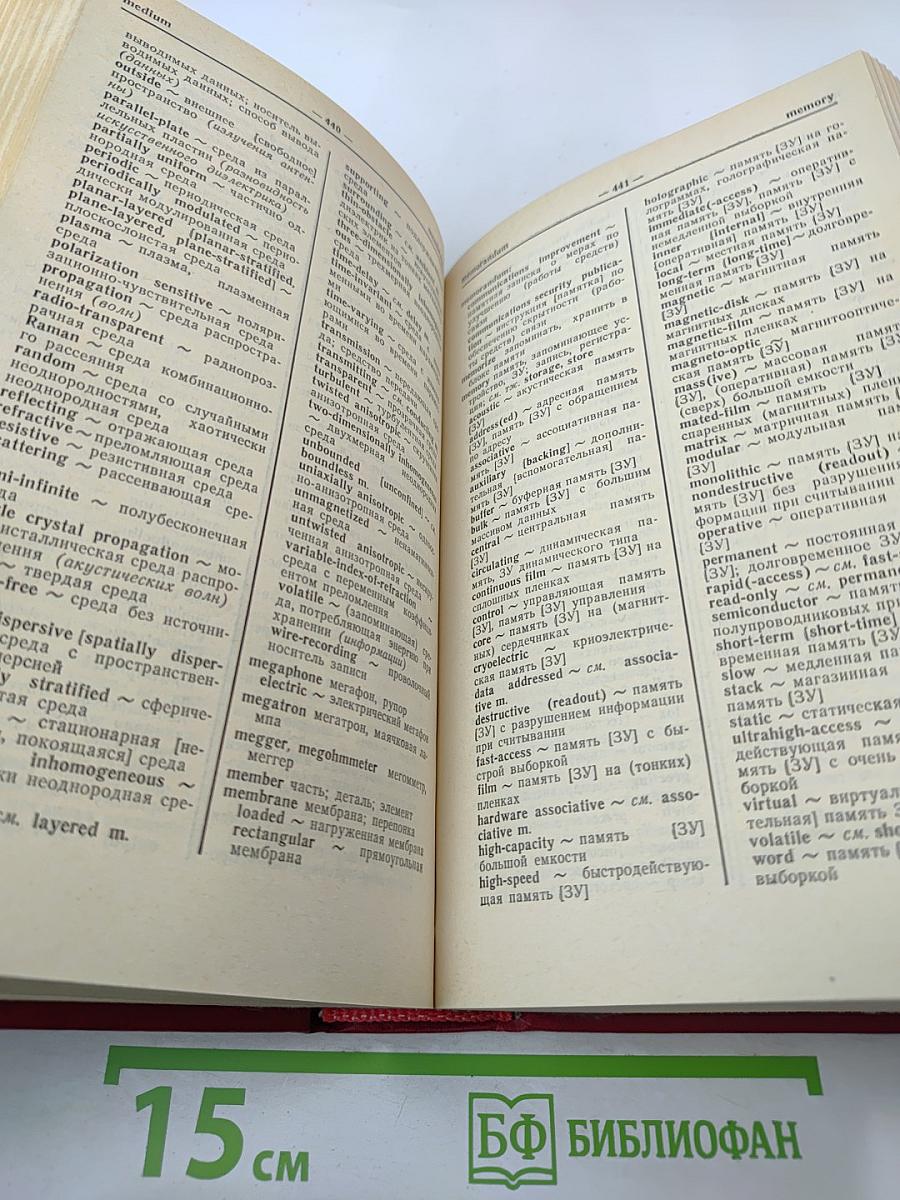 medium
— 440 —
выводимых данных; носитель вы-
водимых данных; способ вывода
(данных)
outside ~ внешнее [свободное]
пространство (излучения антен-
ны)
parallel-plate ~ среда из парал-
лельных пластин (разновидность
искусственного диэлектрика)
partially uniform ~ частично од-
нородная среда
periodic ~ периодическая среда
periodically modulated ~ перио-
дически модулированная среда
planar-layered [planar-stratified,
plane-layered, plane-stratified] ~
плоскослоистая среда
plasma ~ плазма, плазменная
среда
polarization sensitive ~ поляри-
зационно-чувствительная среда
propagation ~ среда распростра-
нения (волн)
radio-transparent ~ радиопроз-
рачная среда
Raman ~ среда комбинационно-
го рассеяния
random ~ среда со случайными
неоднородностями, хаотически
неоднородная среда
reflecting ~ отражающая среда
refractive ~ преломляющая среда
resistive ~ резистивная среда
scattering ~ рассеивающая сре-
mi-infinite ~ полубесконечная
le crystal propagation ~ мо-
кристаллическая среда распро-
нения (акустических волн)
~ твердая среда
-free ~ среда без источни-
dispersive [spatially disper-
среда с пространствен-
персией
y stratified ~ сфериче-
тая среда
~ стационарная [не-
покоящаяся] среда
inhomogeneous ~
ки неоднородная сре-
см. layered m.
supporting ~
surrounding
three-dimensional
time-delay ~ см. delay
time-invariant
time-varying ~ среда
transmission ~
transmitting ~ см.
transparent ~
turbulent ~
twisted anisotropic ~
two-dimensionally inhomogeneous
двухмерная
среда
unbounded
boundless m. [unconfined] ~
uniaxially anisotropic ~ одноос-
но-анизотропная среда
unmagnetized ~ ненамагничен-
ная среда
untwisted anisotropic ~ нескру-
ченная анизотропная среда
variable-index-of-refraction ~
среда с переменным коэффици-
ентом преломления
volatile ~ (запоминающая) сре-
да, потребляющая энергию при
хранении (информации)
wire-recording ~ проволочный
носитель записи
megaphone мегафон, рупор
electric ~ электрический мегафон
megatron мегатрон, маячковая ла-
мпа
megger, megohmmeter мегомметр,
меггер
member часть; деталь; элемент
membrane мембрана; перепонка
loaded ~ нагруженная мембрана
rectangular ~ прямоугольная
мембрана
memorandum
— 441 —
memory
communications improvement ~
служебная записка о мерах по
улучшению (работы средств)
связи
communications security publica-
tion ~ инструкция [памятка] по
обеспечению скрытности (рабо-
ты средств) связи
memorize запоминать, хранить в
памяти
memory память, запоминающее ус-
тройство, ЗУ; запись, регистра-
ция; см. тж. storage, store
acoustic ~ акустическая память
[ЗУ]
address(ed) ~ адресная память
[ЗУ], память [ЗУ] с обращением
по адресу
associative ~ ассоциативная па-
мять [ЗУ]
auxiliary [backing] ~ дополни-
тельная [вспомогательная] па-
мять [ЗУ]
buffer ~ буферная память [ЗУ]
bulk ~ память [ЗУ] с большим
массивом данных
central ~ центральная память
[ЗУ]
circulating ~ динамическая па-
мять, ЗУ динамического типа
continuous film ~ память [ЗУ] на
сплошных пленках
control ~ управляющая память
[ЗУ], память [ЗУ] управления
core ~ память [ЗУ] на (магнит-
ных) сердечниках
cryoelectric ~ криоэлектриче-
ская память [ЗУ]
data addressed ~ см. associa-
tive m.
destructive (readout) ~ память
[ЗУ] с разрушением информации
при считывании
fast-access ~ память [ЗУ] с бы-
строй выборкой
film ~ память [ЗУ] на (тонких)
пленках
hardware associative ~ см. asso-
ciative m.
high-capacity ~ память [ЗУ]
большой емкости
high-speed ~ быстродействую-
щая память [ЗУ]
holographic ~ память [ЗУ] на го-
лограммах, голографическая па-
мять [ЗУ]
immediate(-access) ~ оператив-
ная память [ЗУ], память [ЗУ] с
немедленной выборкой
inner [internal] ~ внутренняя
[оперативная] память [ЗУ]
local ~ местная память [ЗУ]
long-term [long-time] ~ долговре-
менная память [ЗУ]
magnetic ~ магнитная память
[ЗУ]
magnetic-disk ~ память [ЗУ] на
магнитных дисках
magnetic-film ~ память [ЗУ] на
магнитных пленках
magneto-optic ~ магнитооптиче-
ская память [ЗУ]
mass(ive) ~ массовая память
[ЗУ], (оперативная) память [ЗУ]
(сверх) большой емкости
mated-film ~ память [ЗУ] на
спаренных (магнитных) плен
matrix ~ матричная память [
modular ~ модульная пам
[ЗУ]
monolithic ~ память [ЗУ] на
nondestructive (readout) ~
мять [ЗУ] без разрушения
формации при считывании
operative ~ оперативная
[ЗУ]
permanent ~ постоянная
[ЗУ]; долговременное ЗУ
rapid(-access) ~ см. fast-
read-only ~ см. permane
semiconductor ~ память
полупроводниковых при
short-term [short-time]
временная память [ЗУ
slow ~ медленная па
stack ~ магазинная
память [ЗУ]
static ~ статическая
ultrahigh-access ~
действующая памя
мять [ЗУ] с очень
боркой
virtual ~ виртуал
тельная] память З
volatile ~ см. sho
word ~ память [
выборкой
15 см
БФ БИБЛИОФАН